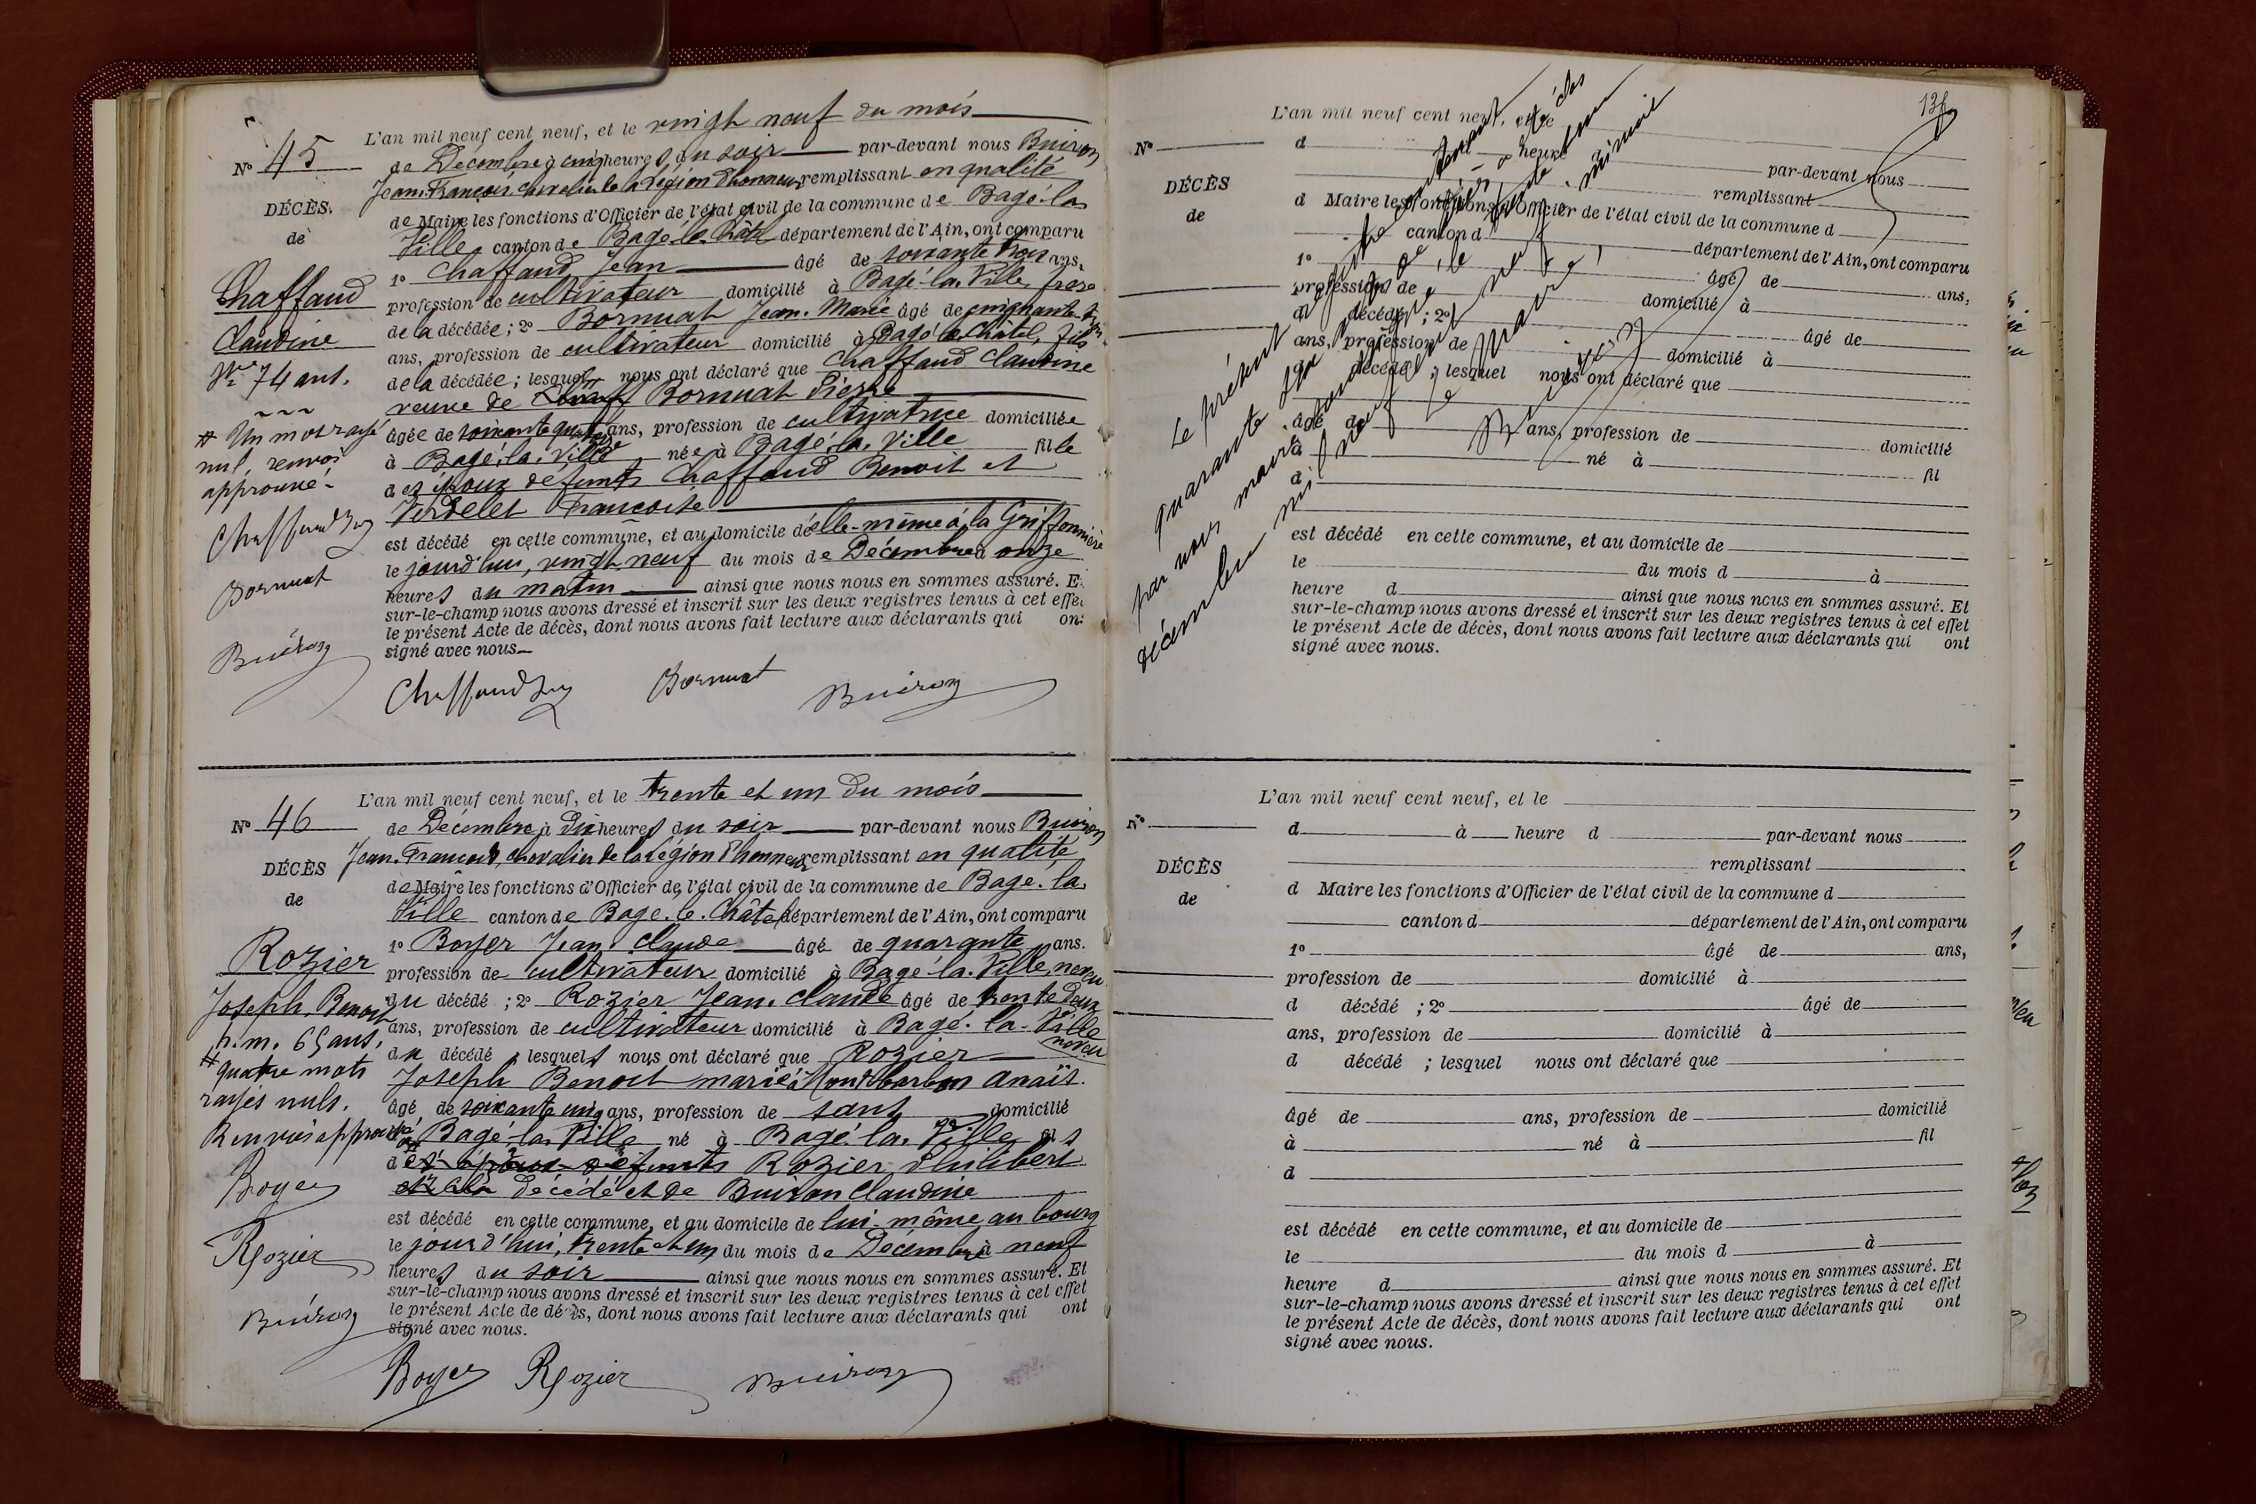 L'an mil neuf cent neuf, et le vingt neuf du mois
N° 45
de Décembre à cinq heures du soir par-devant nous Buiron
Jean-François, chevalier de la Légion d'honneur remplissant en qualité
DÉCÈS.
de Maire les fonctions d'Officier de l'état civil de la commune de Bagé-la-
de
Ville canton de Bagé-le-Châtel département de l'Ain, ont comparu
1° Chaffaud Jean âgé de soixante trois ans,
Chaffaud
profession de cultivateur domicilié à Bagé-la-Ville, frère
Claudine
de la décédée ; 2° Bornuat Jean-Marie âgé de cinquante
ans, profession de cultivateur domicilié à Bagé-le-Châtel, fils
Vve 74 ans.
de la décédée ; lesquels nous ont déclaré que Chaffaud Claudine
veuve de Bornuat Pierre
# Un mot rayé
nul, renvoi
approuvé.
âgée de soixante quatorze ans, profession de cultivatrice domiciliée
à Bagé-la-Ville née à Bagé-la-Ville fille
des époux défunts Chaffaud Benoit et
Verdelet Françoise
Chaffaud
est décédé en cette commune, et au domicile d'elle-même à la Griffonnière
le jourd'hui, vingt neuf du mois de Décembre à onze
Bornuat
heures du matin ainsi que nous nous en sommes assuré. Et
sur-le-champ nous avons dressé et inscrit sur les deux registres tenus à cet effet
le présent Acte de décès, dont nous avons fait lecture aux déclarants qui ont
Buiron
signé avec nous
Chaffaud Bornuat Buiron
L'an mil neuf cent neuf, et le trente et un du mois
N° 46
de Décembre à dix heures du soir par-devant nous Buiron
Jean-François, chevalier de la Légion d'honneur remplissant en qualité
DÉCÈS
de Maire les fonctions d'Officier de l'état civil de la commune de Bagé-la-
de
Ville canton de Bagé-le-Châtel département de l'Ain, ont comparu
1° Boyer Jean-Claude âgé de quarante ans.
Rozier
profession de cultivateur domicilié à Bagé-la-Ville, neveu
Joseph Benoit
du décédé ; 2° Rozier Jean-Claude âgé de trente deux
ans, profession de cultivateur domicilié à Bagé-la-Ville
h. m. 65 ans.
neveu
du décédé ; lesquels nous ont déclaré que Rozier
# quatre mots
rayés nuls.
Renvois approuvés
Joseph Benoit marié à Montbarbon Anaïs.
âgé de soixante cinq ans, profession de sans domicilié
à Bagé-la-Ville né à Bagé-la-Ville fils
des époux défunts Rozier Philibert
décédé et de Buiron Claudine
Boyer
est décédé en cette commune, et au domicile de lui-même au bourg
le jourd'hui, trente et un du mois de Décembre à neuf
Rozier
heures du soir ainsi que nous nous en sommes assuré. Et
sur-le-champ nous avons dressé et inscrit sur les deux registres tenus à cet effet
le présent Acte de décès, dont nous avons fait lecture aux déclarants qui ont
Buiron
signé avec nous.
Boyer Rozier Buiron
138
L'an mil neuf cent neuf, et le
N°
d à heure d par-devant nous
remplissant
DÉCÈS
d Maire les fonctions d'Officier de l'état civil de la commune d
de
canton d département de l'Ain, ont comparu
1° âgé de ans,
profession de domicilié à
d décédé ; 2° âgé de
ans, profession de domicilié à
d décédé ; lesquel nous ont déclaré que
âgé de ans, profession de domicilié
à né à fil
d
est décédé en cette commune, et au domicile de
le du mois d à
heure d ainsi que nous nous en sommes assuré. Et
sur-le-champ nous avons dressé et inscrit sur les deux registres tenus à cet effet
le présent Acte de décès, dont nous avons fait lecture aux déclarants qui ont
signé avec nous.
Le présent registre contenant
quarante six actes a été clos
par nous maire
décembre mil neuf cent neuf à minuit
Le Maire,
Buiron
L'an mil neuf cent neuf, et le
N°
d à heure d par-devant nous
remplissant
DÉCÈS
d Maire les fonctions d'Officier de l'état civil de la commune d
de
canton d département de l'Ain, ont comparu
1° âgé de ans,
profession de domicilié à
d décédé ; 2° âgé de
ans, profession de domicilié à
d décédé ; lesquel nous ont déclaré que
âgé de ans, profession de domicilié
à né à fil
d
est décédé en cette commune, et au domicile de
le du mois d à
heure d ainsi que nous nous en sommes assuré. Et
sur-le-champ nous avons dressé et inscrit sur les deux registres tenus à cet effet
le présent Acte de décès, dont nous avons fait lecture aux déclarants qui ont
signé avec nous.